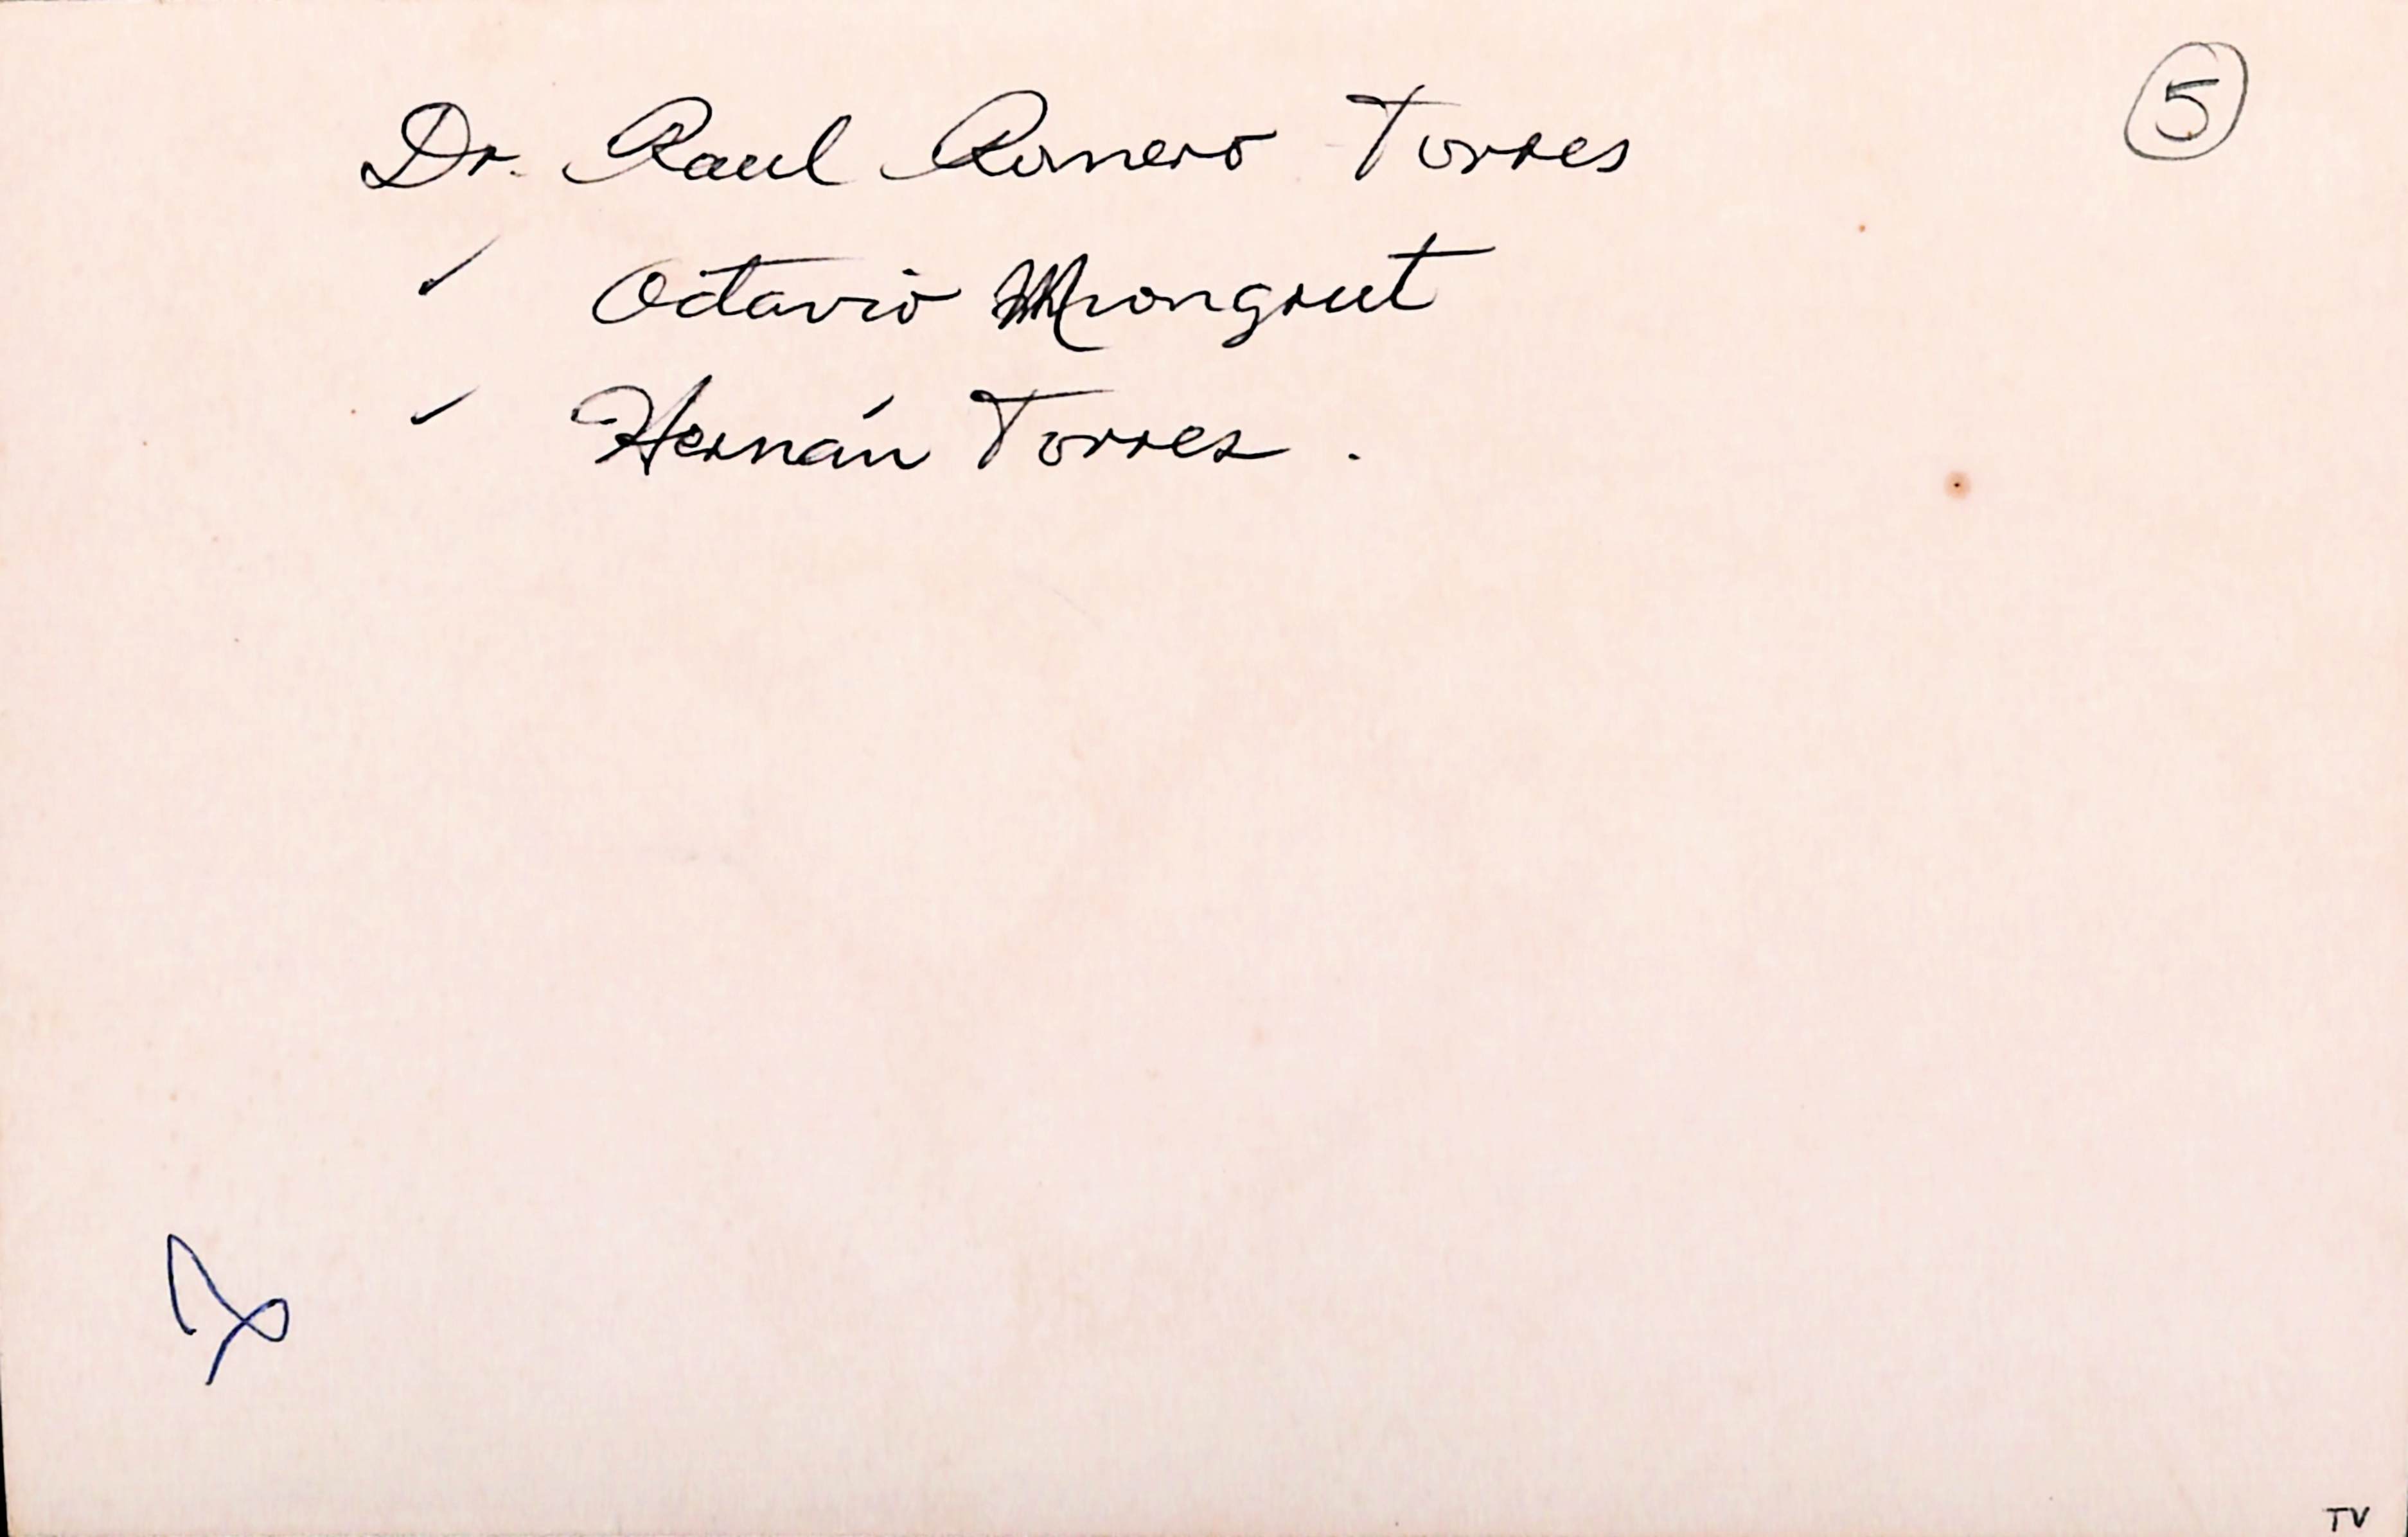 5
Dr. Raul Romero Torres
✓ Octavio Mongrut
✓ Hernán Torres.
TV